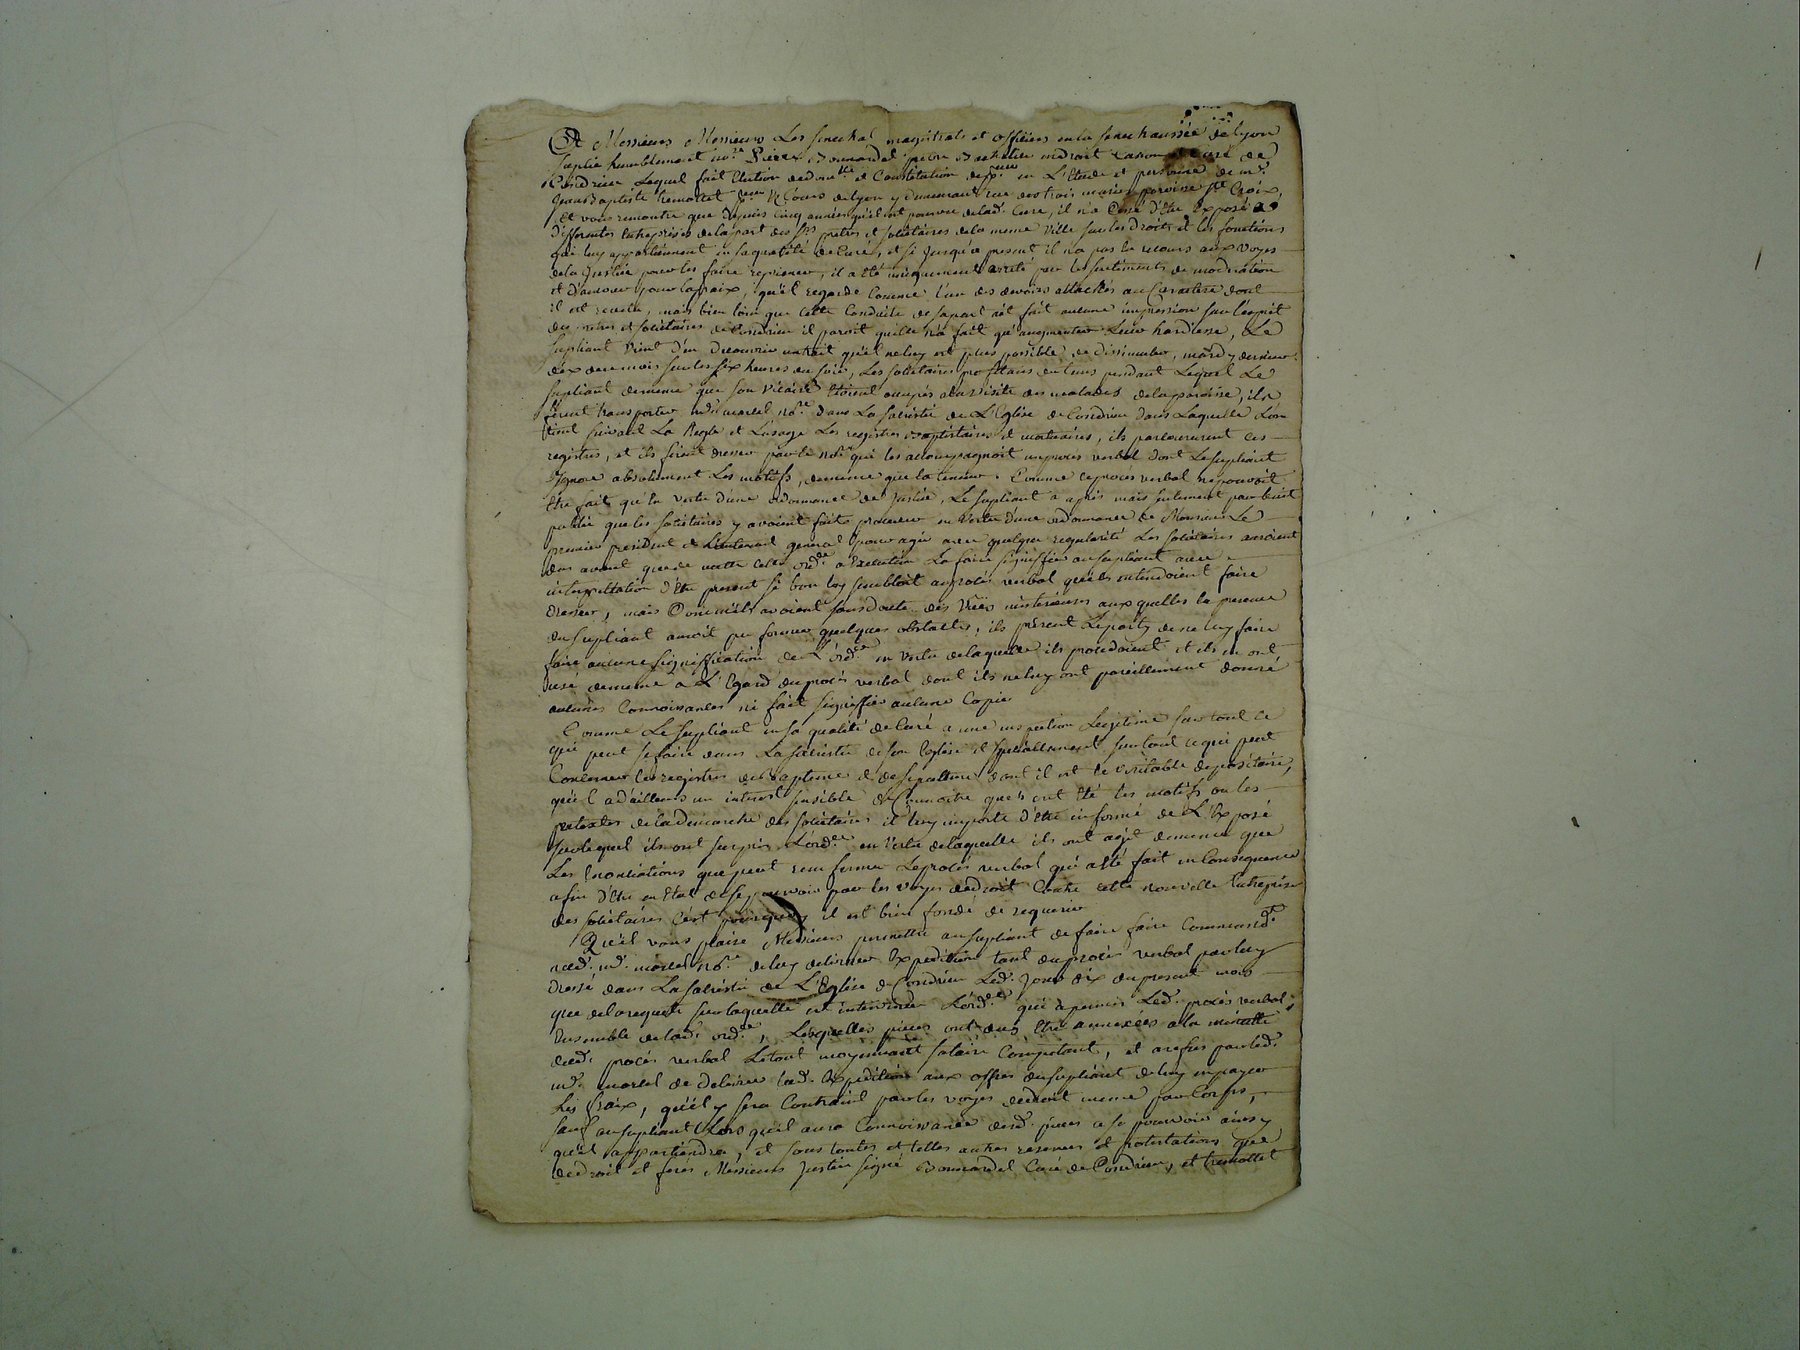 A Messieurs Messieurs Les senechal magistrats et officiers en la senechaussée de lyon
suplie humblement me Pierre Bonnardel pretre Bachelier en droit Canon et curé de
Condrieu Lequel fait Election de domlle et Constitution de pr en L'Etude et personne de me
Jean Baptiste tremollet pr es Cours de lyon y demeurant rue des trois maries paroisse ste Croix,
Et vous remontre que depuis cinq années qu'il est pourvu de lad. Cure, il n'a Cessé d'être Exposé a
differentes Entreprises de la part des srs pretres et societaires de la meme Ville sur les Droits et les fonctions
qui luy appartiennent en sa qualité de Curé, et si Jusqu'a present il n'a pas eu recours aux voyes
de la Justice pour les faire reprimer, il a été uniquement areté par les sentiments de moderation
et d'amour pour la paix, qu'il regarde Comme l'un des devoirs attachés au Caractere dont
il est revetu, mais bien loin que cette Conduite de sa part ait fait aucune impression sur l'esprit
des pretres et societaires de Condrieu il paroit quelle n'a fait qu'augmenter Leur hardiesse, Le
supliant vient d'en decouvrir un trait qu'il ne luy est plus possible de dissimuler, mardy dernier
dix de ce mois sur les six heures du soir, Les societaires profitans du tems pendant Lequel Le
supliant de meme que son Vicaire Etoient occupés a la visite des malades de la paroisse, ils
firent transporter me morel nore Dans La sacristie de L'Eglise de Condrieu dans Laquelle L'on
tient suivant La Regle et L'usage Les registres baptistaires et mortuaires, ils parcoururent ces
registres, et ils firent dresser par le nore qui les accompagnoit un procès verbal dont Le supliant
Ignore absolument Les motifs, de meme que la teneur. Comme ce procès verbal ne pouvoit
être fait qu'en vertu d'une ordonnance de Justice, Le supliant a apris mais seulement par bruit
public que les societaires y avoient fait proceder en vertu d'une ordonnance de Monsieur Le
premier president et Lieutenant general pour agir avec quelque regularité Les societaires auroient
deu avant que de mettre cette ordce a Execution La faire signiffier au supliant avec
interpellation d'être present si bon luy sembloit au procès verbal qu'ils entendoient faire
dresser, mais Comme ils avoient sans doute des Vües misterieuses auxquelles la presence
du supliant auroit pu former quelques obstacles, ils prirent Le party de ne luy faire
faire aucune signiffication de L'ordce en vertu de laquelle ils procedoient et ils en ont
usé de meme a L'Egard du procès verbal dont ils ne luy ont pareillement donné
aucunes Connoissances ni fait signiffier aucune Copie
Comme Le supliant en sa qualité de Curé a une inspection Legitime sur tout ce
qui peut se faire dans La sacristie de son Eglise et specialement sur tout ce qui peut
Concerner les registres de Bapteme et de sepulture dont il est le veritable depositaire,
qu'il a d'ailleurs un interest sensible de Connoitre quels ont été les motifs ou les
pretextes de la demarche des societaires il luy importe d'être informé de L'Exposé
sur lequel ils ont surpris L'ordce en vertu de laquelle ils ont agit de meme que
Les Enonciations que peut renfermer Le procès verbal qui a été fait en Consequence
afin d'être en Etat de se pourvoir par les voyes de droit Contre cette nouvelle Entreprise
des societaires c'est pourquoy il est bien fondé de requerir
Qu'il vous plaise Messieurs permettre au supliant de faire faire Commandt
aud. me morel nore de luy delivrer Expedition tant du procès verbal par luy
Dressé dans La sacristie de L'Eglise de Condrieu Led. Jour dix du present mois
que de la requete sur laquelle est intervenue L'ordce qui a permis Led. procès verbal
Ensemble de lad. ordce, Lesquelles pieces ont deu être annexées a la minutte
dud. procès verbal Le tout moyennant salaire Competant, et a refus par led.
me morel de delivrer lad. Expedition aux offres du supliant de luy en payer
les fraix, qu'il y sera Contraint par les voyes de droit meme par Corps,
sauf au supliant Lorsqu'il aura Connoissance desd. pieces a se pourvoir ainsy
qu'il appartiendra, et sous toutes et telles autres reserves et protestations que
de droit et feres Messieurs Justice signé Bonnardel Curé de Condrieu, et tremollet